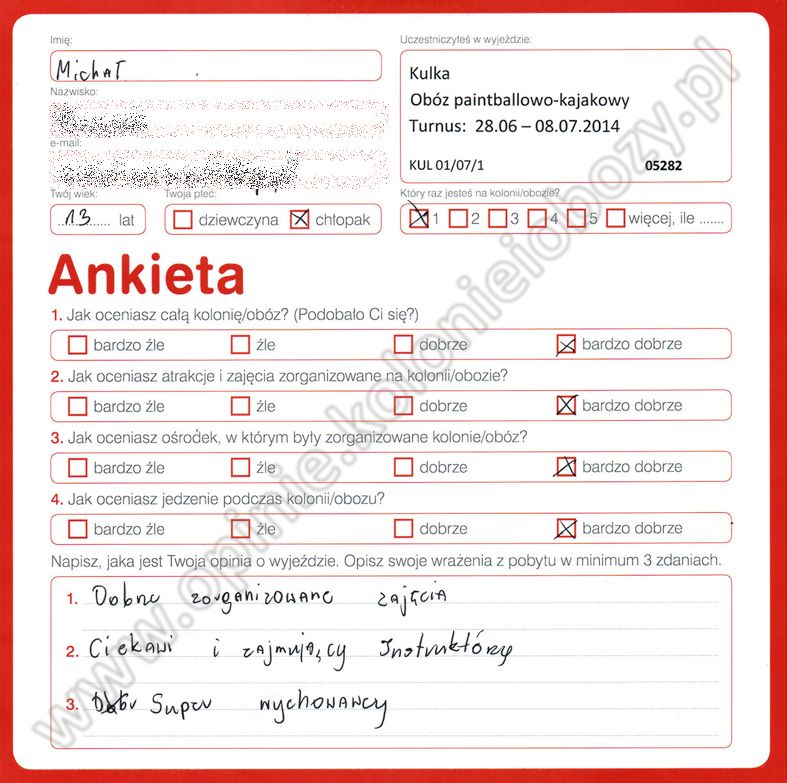 Imię:
Uczestniczyłeś w wyjeździe:
Michał
Kulka
Nazwisko:
Obóz paintballowo-kajakowy
Turnus: 28.06 – 08.07.2014
e-mail:
KUL 01/07/1 05282
Twój wiek:
Twoja płeć:
Który raz jesteś na kolonii/obozie?
13 lat
dziewczyna chłopak
1 2 3 4 5 więcej, ile .......
Ankieta
1. Jak oceniasz całą kolonię/obóz? (Podobało Ci się?)
bardzo źle źle dobrze bardzo dobrze
2. Jak oceniasz atrakcje i zajęcia zorganizowane na kolonii/obozie?
bardzo źle źle dobrze bardzo dobrze
3. Jak oceniasz ośrodek, w którym były zorganizowane kolonie/obóz?
bardzo źle źle dobrze bardzo dobrze
4. Jak oceniasz jedzenie podczas kolonii/obozu?
bardzo źle źle dobrze bardzo dobrze
Napisz, jaka jest Twoja opinia o wyjeździe. Opisz swoje wrażenia z pobytu w minimum 3 zdaniach.
1. Dobrze zorganizowane zajęcia
2. Ciekawi i zajmujący Instruktórzy
3. Super wychowawcy
www.opinie.kolonieiobozy.pl